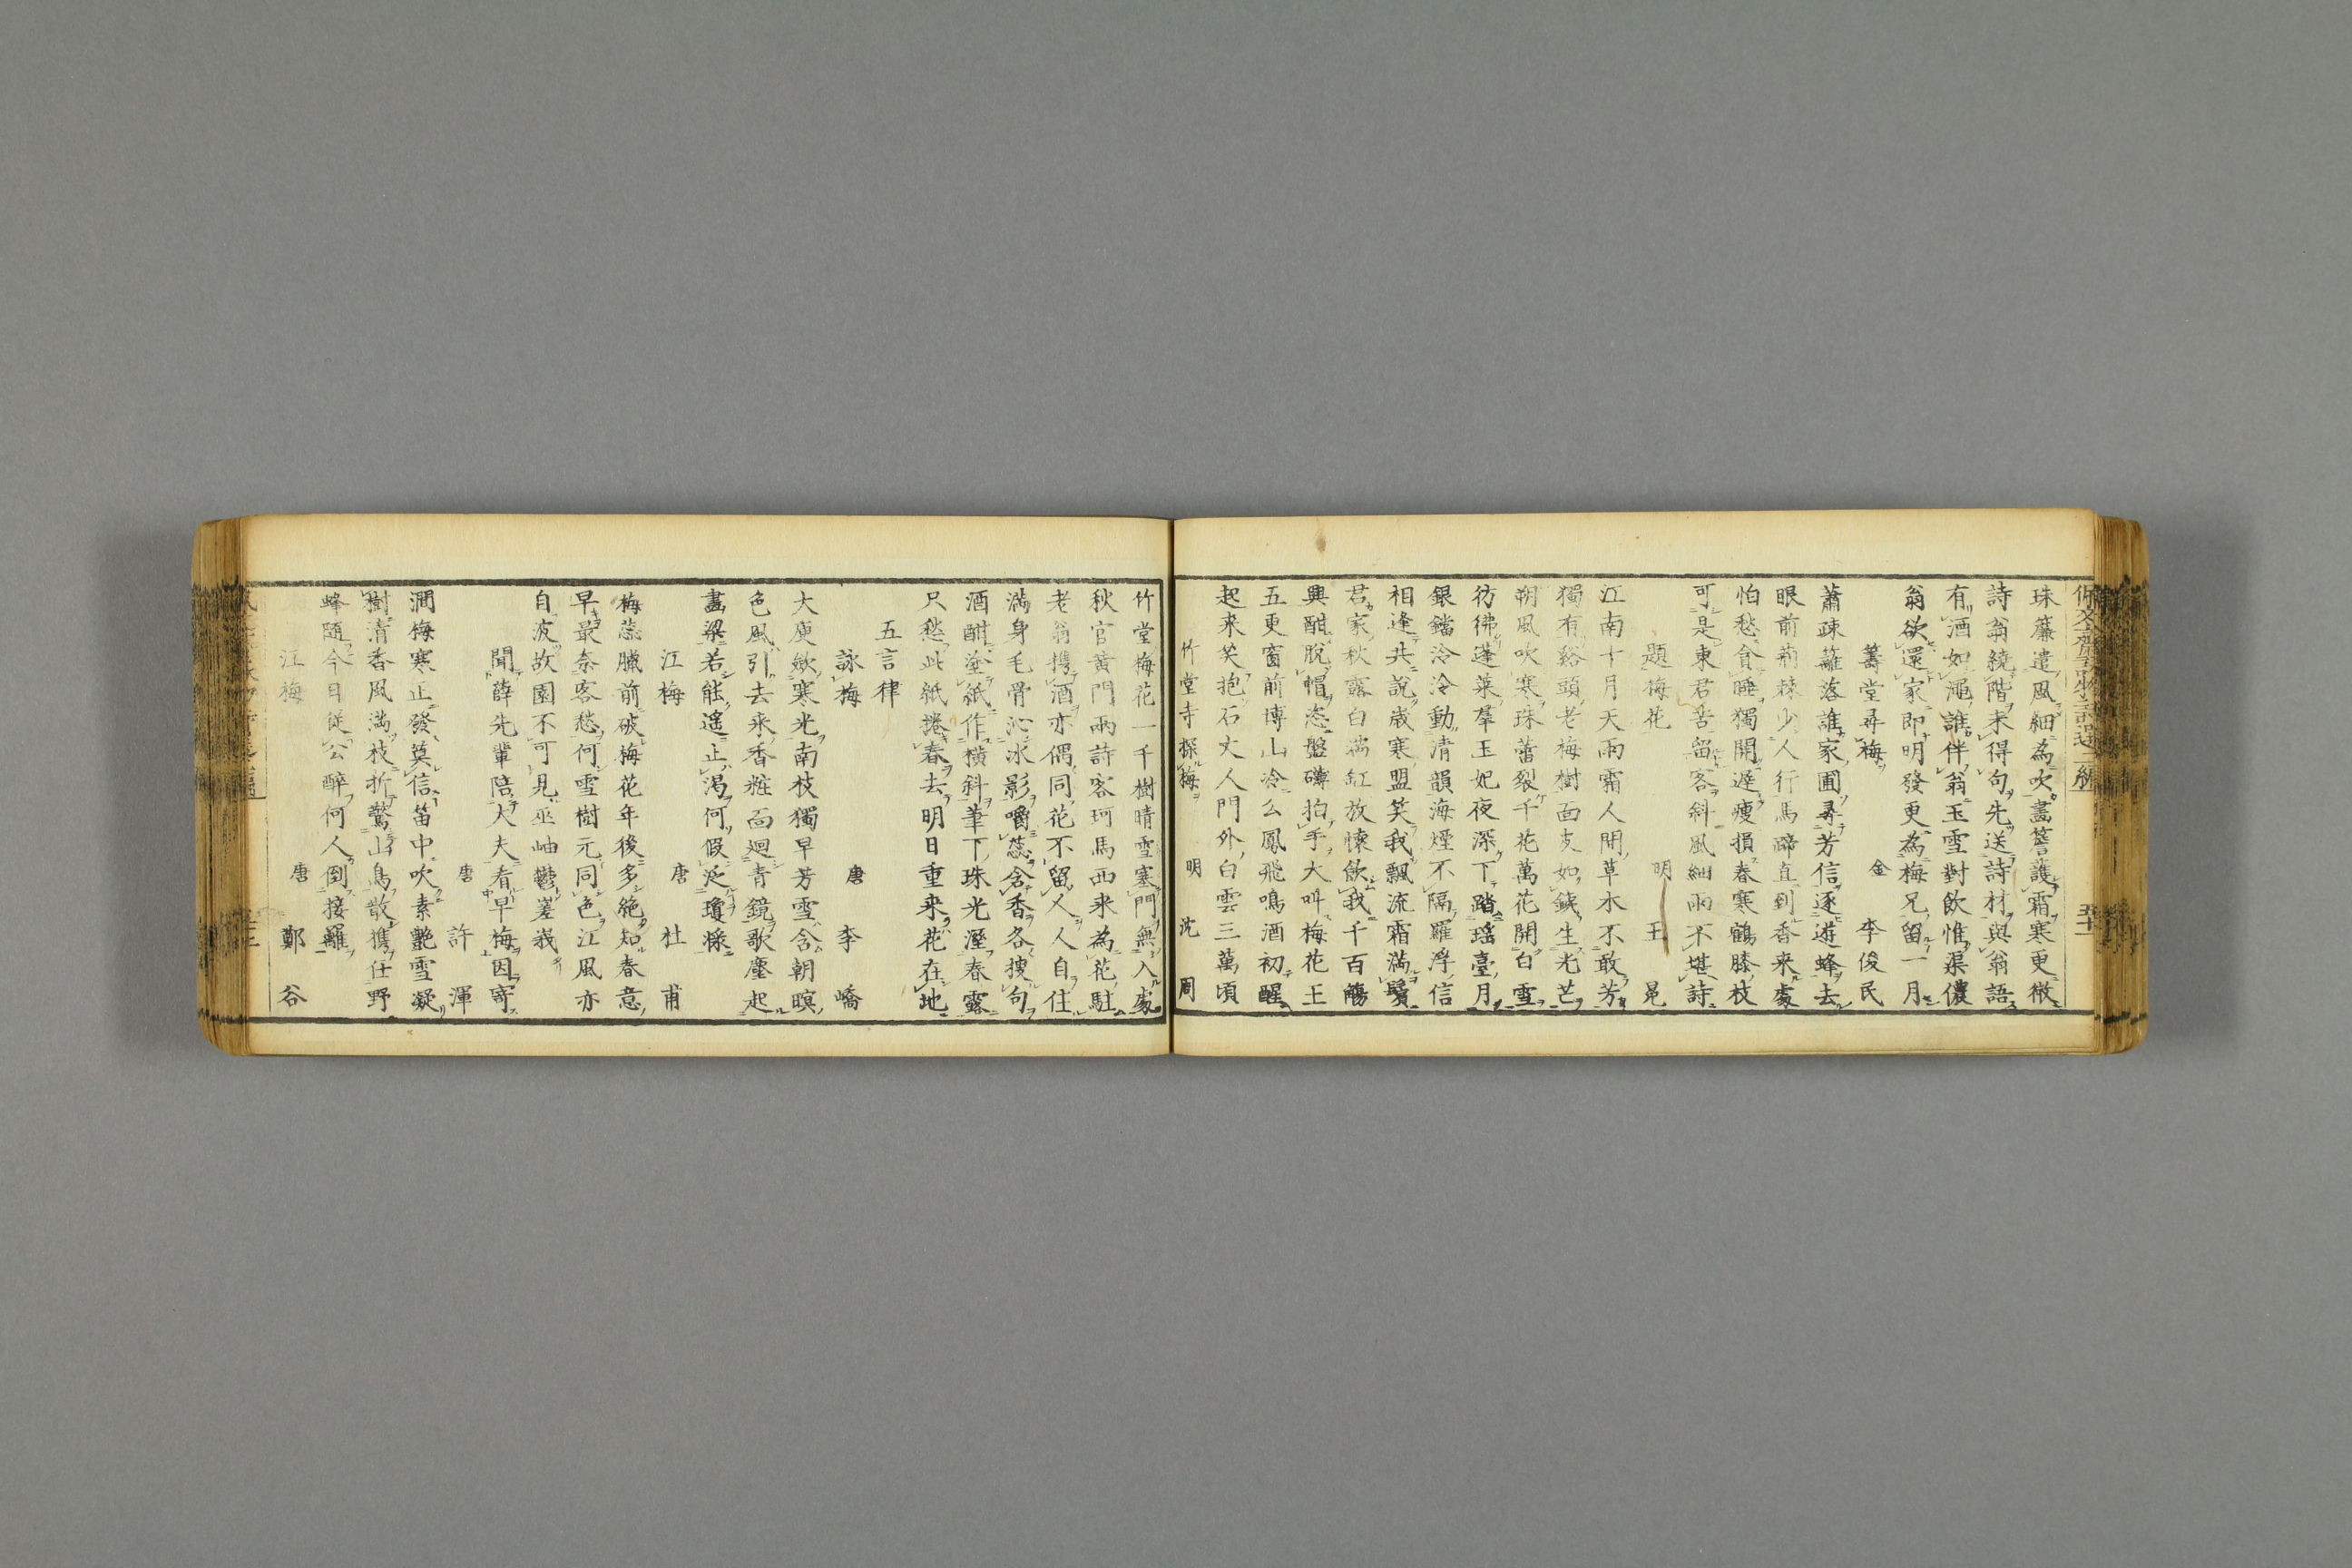 珠簾遣風細為吹畫簷護霜寒更微
詩翁繞階未得句先送詩材與翁語
有酒如澠誰伴翁玉雪對飲惟渠儂
翁欲還家即明發更為梅兄留一月
籌堂尋梅 金 李俊民
蕭疎籬落誰家圃尋芳信逐遊蜂去
眼前荊棘少人行馬蹄直到香來處
怕愁貪睡獨開遲瘦損春寒鶴膝枝
可是東君苦留客斜風細雨不堪詩
題梅花 明 王冕
江南十月天雨霜人間草木不敢芳
獨有谿頭老梅樹面皮如鐵生光芒
朔風吹寒珠蕾裂千花萬花開白雪
彷彿蓬萊羣玉妃夜深下踏瑤臺月
銀鐺泠泠動清韻海煙不隔羅浮信
相逢共說歲寒盟笑我飄流霜滿鬢
君家秋露白滿缸放懷飲我千百觴
興酣脫帽恣盤礴拍手大叫梅花王
五更窗前博山冷么鳳飛鳴酒初醒
起來笑抱石丈人門外白雲三萬頃
竹堂寺探梅 明 沈周
竹堂梅花一千樹晴雪塞門無入處
秋官黃門兩詩客珂馬西來為花駐
老翁攜酒亦偶同花不留人人自住
滿身毛骨沁冰影嚼蕊含香各搜句
酒酣塗紙作橫斜筆下珠光溼春露
只愁此紙捲春去明日重來花在地
五言律
詠梅 唐 李嶠
大庾斂寒光南枝獨早芳雪含朝暝
色風引去來香粧面迴青鏡歌塵起
畫梁若能遙止渴何假泛瓊漿
江梅 唐 杜甫
梅蕊臘前破梅花年後多絕知春意
早最奈客愁何雪樹元同色江風亦
自波故園不可見巫岫鬱嵳峩
聞薛先輩陪大夫看早梅因寄
唐 許渾
澗梅寒正發莫信笛中吹素艷雪凝
樹清香風滿枝折驚山鳥散攜任野
蜂隨今日從公醉何人倒接䍦
江梅 唐 鄭谷